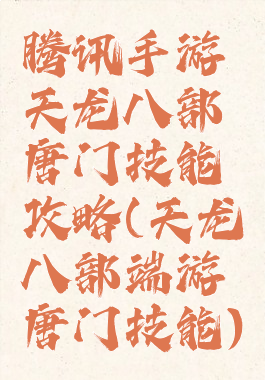 腾讯手游
天龙八部
唐门技能
攻略(天龙
八部端游
唐门技能)